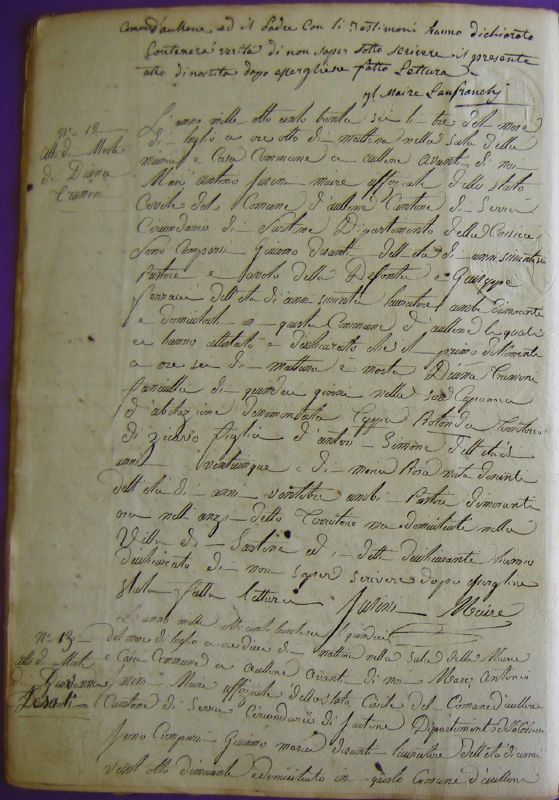 Comm d'aullene, ed il Padre Con li Testimoni hanno dichiarato
Contenere verità di non saper sotto scrivere il presente
atto di nascita dopo essergliene fatto Lettura
Il Maire Lanfranchi
No 12
Atto di Morte
di Diana
Simoni
L'anno mille otto cento trenta sei li tre del mese
di luglio a ore otto di mattina nella Sala della
e Casa Commune a aullene avanti di noi
Marc' antonio maire uffiziale dello stato
Civile del Comune d'aullene Cantone di Serra
Circondario di Sartene Dipartimento della Corsica
Sono Comparsi Giacomo desanti dell'età di anni
Pastore e della Defonta e Giuseppe
dell'età di anni lauratore ambi dimoranti
e domiciliati in questa Commune di aullene li quali
ci hanno attestato e dichiarato che il primo dell'
a ore sei di mattina è morta Diana
fanciulla di quindici giorni nella sua Capanna
d'abitazione denominata Rotonda territorio
di zicavo figlia d'anton Simone dell'età di
anni venticinque e di maria Rosa nata desanti
dell'età di anni ventitre ambi Pastori dimoranti
ora nell'anzi detto Territorio ma domiciliati nella
Villa di Sartene ed i detti dichiaranti hanno
dichiarato di non saper scrivere dopo essergliene
stata fatta lettura
Maire
L'anno mille otto cento trenta sei li quindici
No 13
del mese di luglio a ore dieci di mattina nella Sala della Mairie
Atto di Morte
e Casa Commune a aullene, avanti di noi Marc' Antonio
di Giovanna
Maire uffiziale dello stato Civile del Comune d'aullene
Desanti
Cantone di Serra Circondario di Sartene Dipartimento della Corsica
Sono Comparsi Giacomo maria desanti lauratore dell'età di anni
vent'otto dimorante e domiciliato in questo Comune d'aullene